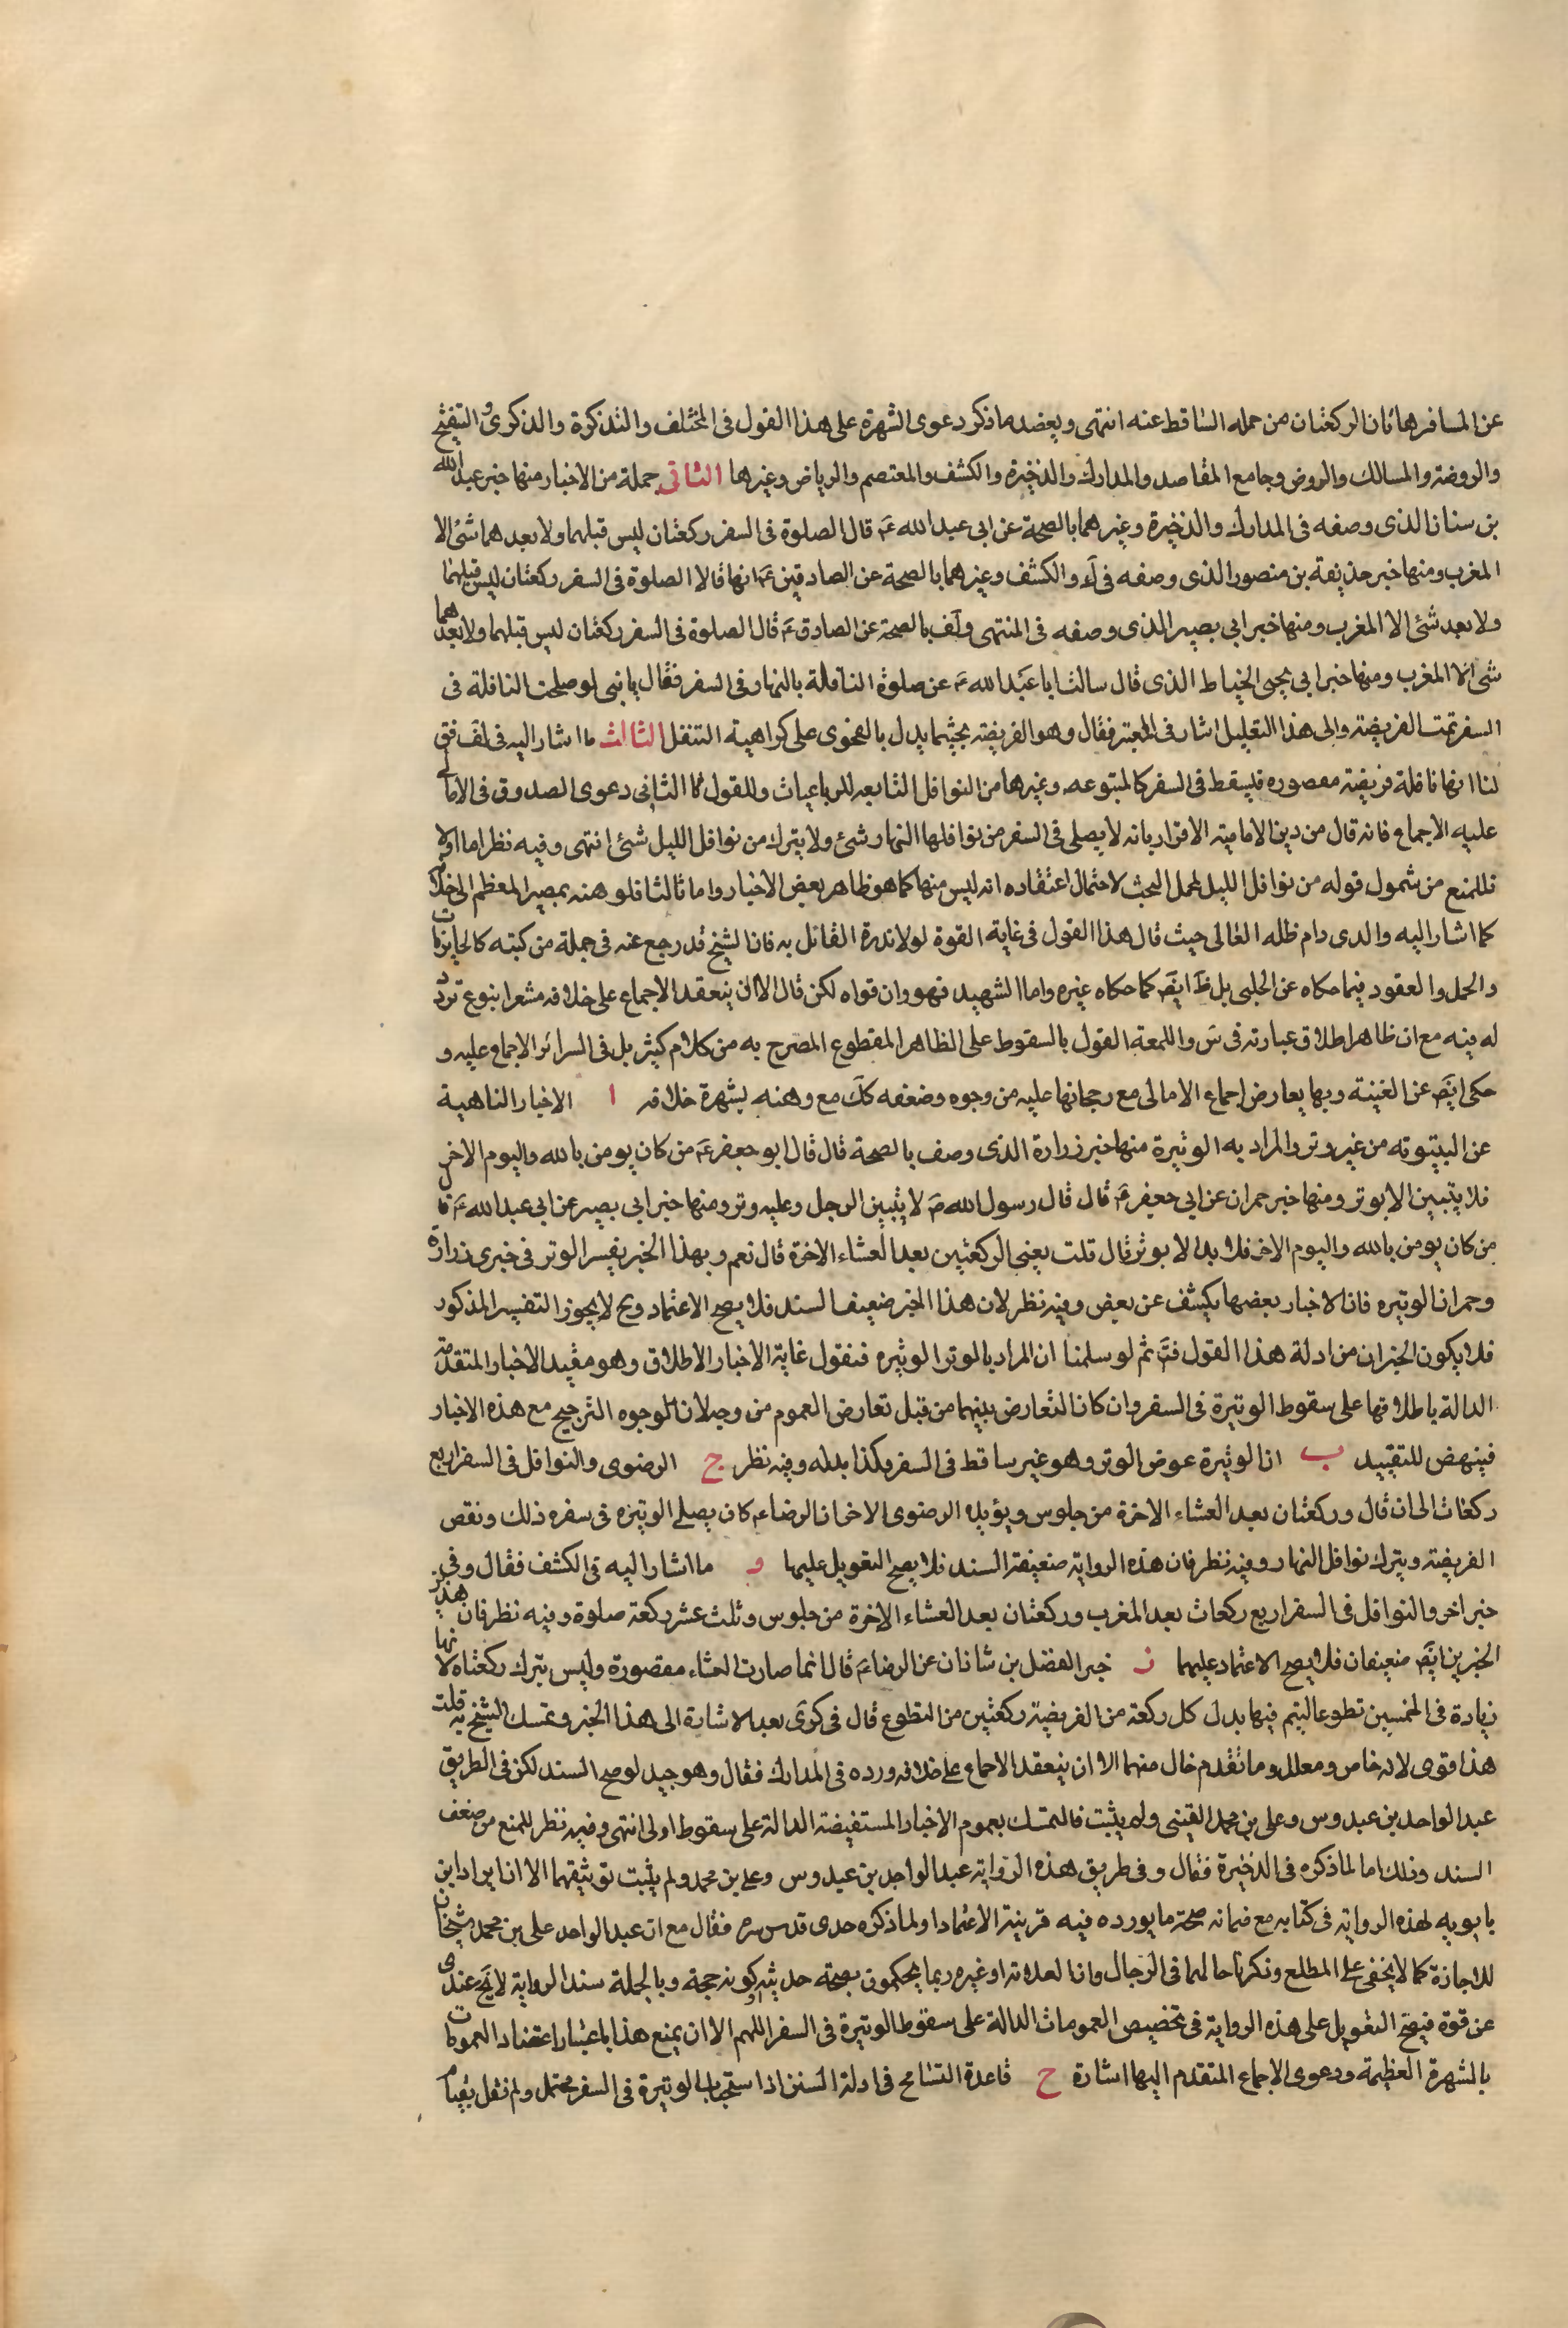 عن المسافر هاتان الركعتان من حمله الساقط عنه انتهى ويعضد ما ذكر دعوى الشهرة على هذا القول فى المختلف والتذكرة والذكرى و التنقيح
والروضة والمسالك والروض وجامع المقاصد والمدارك والذخيرة والكشف والمعتصم والرياض وغيرها الثانى جملة من الاخبار منها خبر عبد الله
بن سنان الذى وصفه فى المدارك والذخيرة وغيرهما بالصحة عن ابى عبد الله ع قال الصلوة فى السفر ركعتان ليس قبلهما ولا بعدهما شئ الا
المغرب ومنها خبر حذيفة بن منصور الذى وصفه فى ك والكشف وغيرهما بالصحة عن الصادقين ع انهما قالا الصلوة فى السفر ركعتان ليس قبلهما
ولا بعد شئ الا المغرب ومنها خبر ابى بصير الذى وصفه فى المنتهى ولف بالصحة عن الصادق ع قال الصلوة فى السفر ركعتان ليس قبلهما ولا بعدهما
شئ الا المغرب ومنها خبر ابى يحيى الخياط الذى قال سالت ابا عبد الله ع عن صلوة النافلة بالنهار فى السفر فقال يا بنى لو صلحت النافلة فى
السفر تمت الفريضة والى هذا التعليل اشار فى المعتبر فقال وهو الفريضة بحثهما يدل بالفحوى على كراهية التنفل الثالث ما اشار اليه فى لف فق
لنا انها نافلة فريضة مقصوره فليسقط فى السفر كالمتبوعه وغيرها من النوافل التابعه للرباعيات وللقول الثانى دعوى الصدوق فى الامالى
عليه الاجماع فانه قال من دين الامامية الاقرار بانه لا يصلى فى السفر من نوافلها النهار شئ ولا يترك من نوافل الليل شئ انتهى وفيه نظر اما اولا
فللمنع من شمول قوله من نوافل الليل لمحل البحث لاحتمال اعتقاده انه ليس منها كما هو ظاهر بعض الاخبار واما ثالثا فلوهنه بمصير المعظم الى خلافه
كما اشار اليه والدى دام ظله العالى حيث قال هذا القول فى غاية القوة لولا ندرة القائل به فان الشيخ قد رجع عنه فى جملة من كتبه كالحايريات
والجمل والعقود فيما حكاه عن الحلبى بل ظ ايض كما حكاه غيره واما الشهيد فهو وان قواه لكن قال الا ان ينعقد الاجماع على خلافه مشعرا بنوع تردد
له فيه مع ان ظاهر اطلاق عبارته فى س واللمعة القول بالسقوط على الظاهر المقطوع المصرح به من كلام كثير بل فى السرائر الاجماع عليه و
حكى ايض عن الغنية وبها يعارض اجماع الامالى مع رجحانها عليه من وجوه وضعفه كك مع وهنه بشهرة خلافه ا الاخبار الناهية
عن البيتوته من غير وتر والمراد به الوتيرة منها خبر زرارة الذى وصف بالصحة قال قال ابو جعفر ع من كان يومن بالله واليوم الاخر
فلا يبيتن الا بوتر ومنها خبر حمران عن ابى جعفر ع قال قال رسول الله ص لا يبيتن الرجل وعليه وتر ومنها خبر ابى بصير عن ابى عبد الله ع قا
من كان يومن بالله واليوم الاخر فلا يدل الا بوتر قال قلت يعنى الركعتين بعد العشاء الاخرة قال نعم وبهذا الخبر يفسر الوتر فى خبرى زرارة
وحمران الوتيره فان الاخبار بعضها يكشف عن بعض وفيه نظر لان هذا الخبر ضعيف السند فلا يصح الاعتماد وح لا يجوز التفسير المذكور
فلا يكون الخبران من ادلة هذا القول فت ثم لو سلمنا ان المراد بالوتر الوتيره فنقول غاية الاخبار الاطلاق وهو مقيد الاخبار المتقدمة
الدالة باطلاقها على سقوط الوتيرة فى السفر وان كان التعارض بينهما من قبل تعارض العموم من وجه لان الوجوه الترجيح مع هذه الاخبار
فينهض للتقييد ب ان الوتيرة عوض الوتر وهو غير ساقط فى السفر فكذا بدله وفيه نظر ج الرضوى والنوافل فى السفر اربع
ركعات الى ان قال وركعتان بعد العشاء الاخرة من جلوس ويؤيده الرضوى الاخر ان الرضا ع كان يصلى الوتيره فى سفره ذلك ونقص
الفريضة ويترك نوافل النهار وفيه نظر فان هذه الرواية ضعيفة السند فلا يصح التعويل عليها و ما اشار اليه فى الكشف فقال وفى
خبر اخر والنوافل فى السفر اربع ركعات بعد المغرب وركعتان بعد العشاء الاخرة من جلوس وثلث عشر ركعة صلوة وفيه نظر فان هذين
الخبرين ايض ضعيفان فلا يصح الاعتماد عليهما ز خبر الفضل بن شاذان عن الرضا ع قال انما صارت العشاء مقصورة وليس يترك ركعتاه لانها
زيادة فى الخمسين تطوعا ليتم فيها بدل كل ركعة من الفريضة ركعتين من التطوع قال فى كرى بعد الاشارة الى هذا الخبر وتمسك الشيخ به قلت
هذا قوى لانه خاص ومعلل وما تقدم خال منهما الا ان ينعقد الاجماع على خلافه ورده فى المدارك فقال وهو جيد لو صح السند لكن فى الطريق
عبد الواحد بن عبدوس وعلى بن محمد القتيبى ولم يثبت فالتمسك بعموم الاخبار المستفيضة الدالة على سقوط اولى انتهى وفيه نظر للمنع من ضعف
السند وذلك اما لما ذكره فى الذخيرة فقال وفى طريق هذه الرواية عبد الواحد بن عبدوس وعلى بن محمد ولم يثبت توثيقهما الا ان ايراد ابن
بابويه لهذه الرواية فى كتابه مع ضمانه صحة ما يورده فيه قرينة الاعتماد او لما ذكره جدى قدس سره فقال مع ان عبد الواحد على بن محمد شيخان
للاجازة كما لا يخفى على المطلع وذكرنا حالهما فى الرجال وانا لعدالته او غيره ربما يحكمون بصحة حديثه او كونه حجة وبالجملة سند الرواية لا يخ عندى
عن قوة فيصح التعويل على هذه الرواية فى تخصيص العمومات الدالة على سقوط الوتيرة فى السفر اللهم الا ان يمنع هذا باعتبار اعتضاد العمومات
بالشهرة العظيمة ودعوى الاجماع المتقدم اليها اشارة ح قاعدة التسامح فى ادلة السنن اذ استحباب الوتيرة فى السفر محتمل ولم نقل بقيام